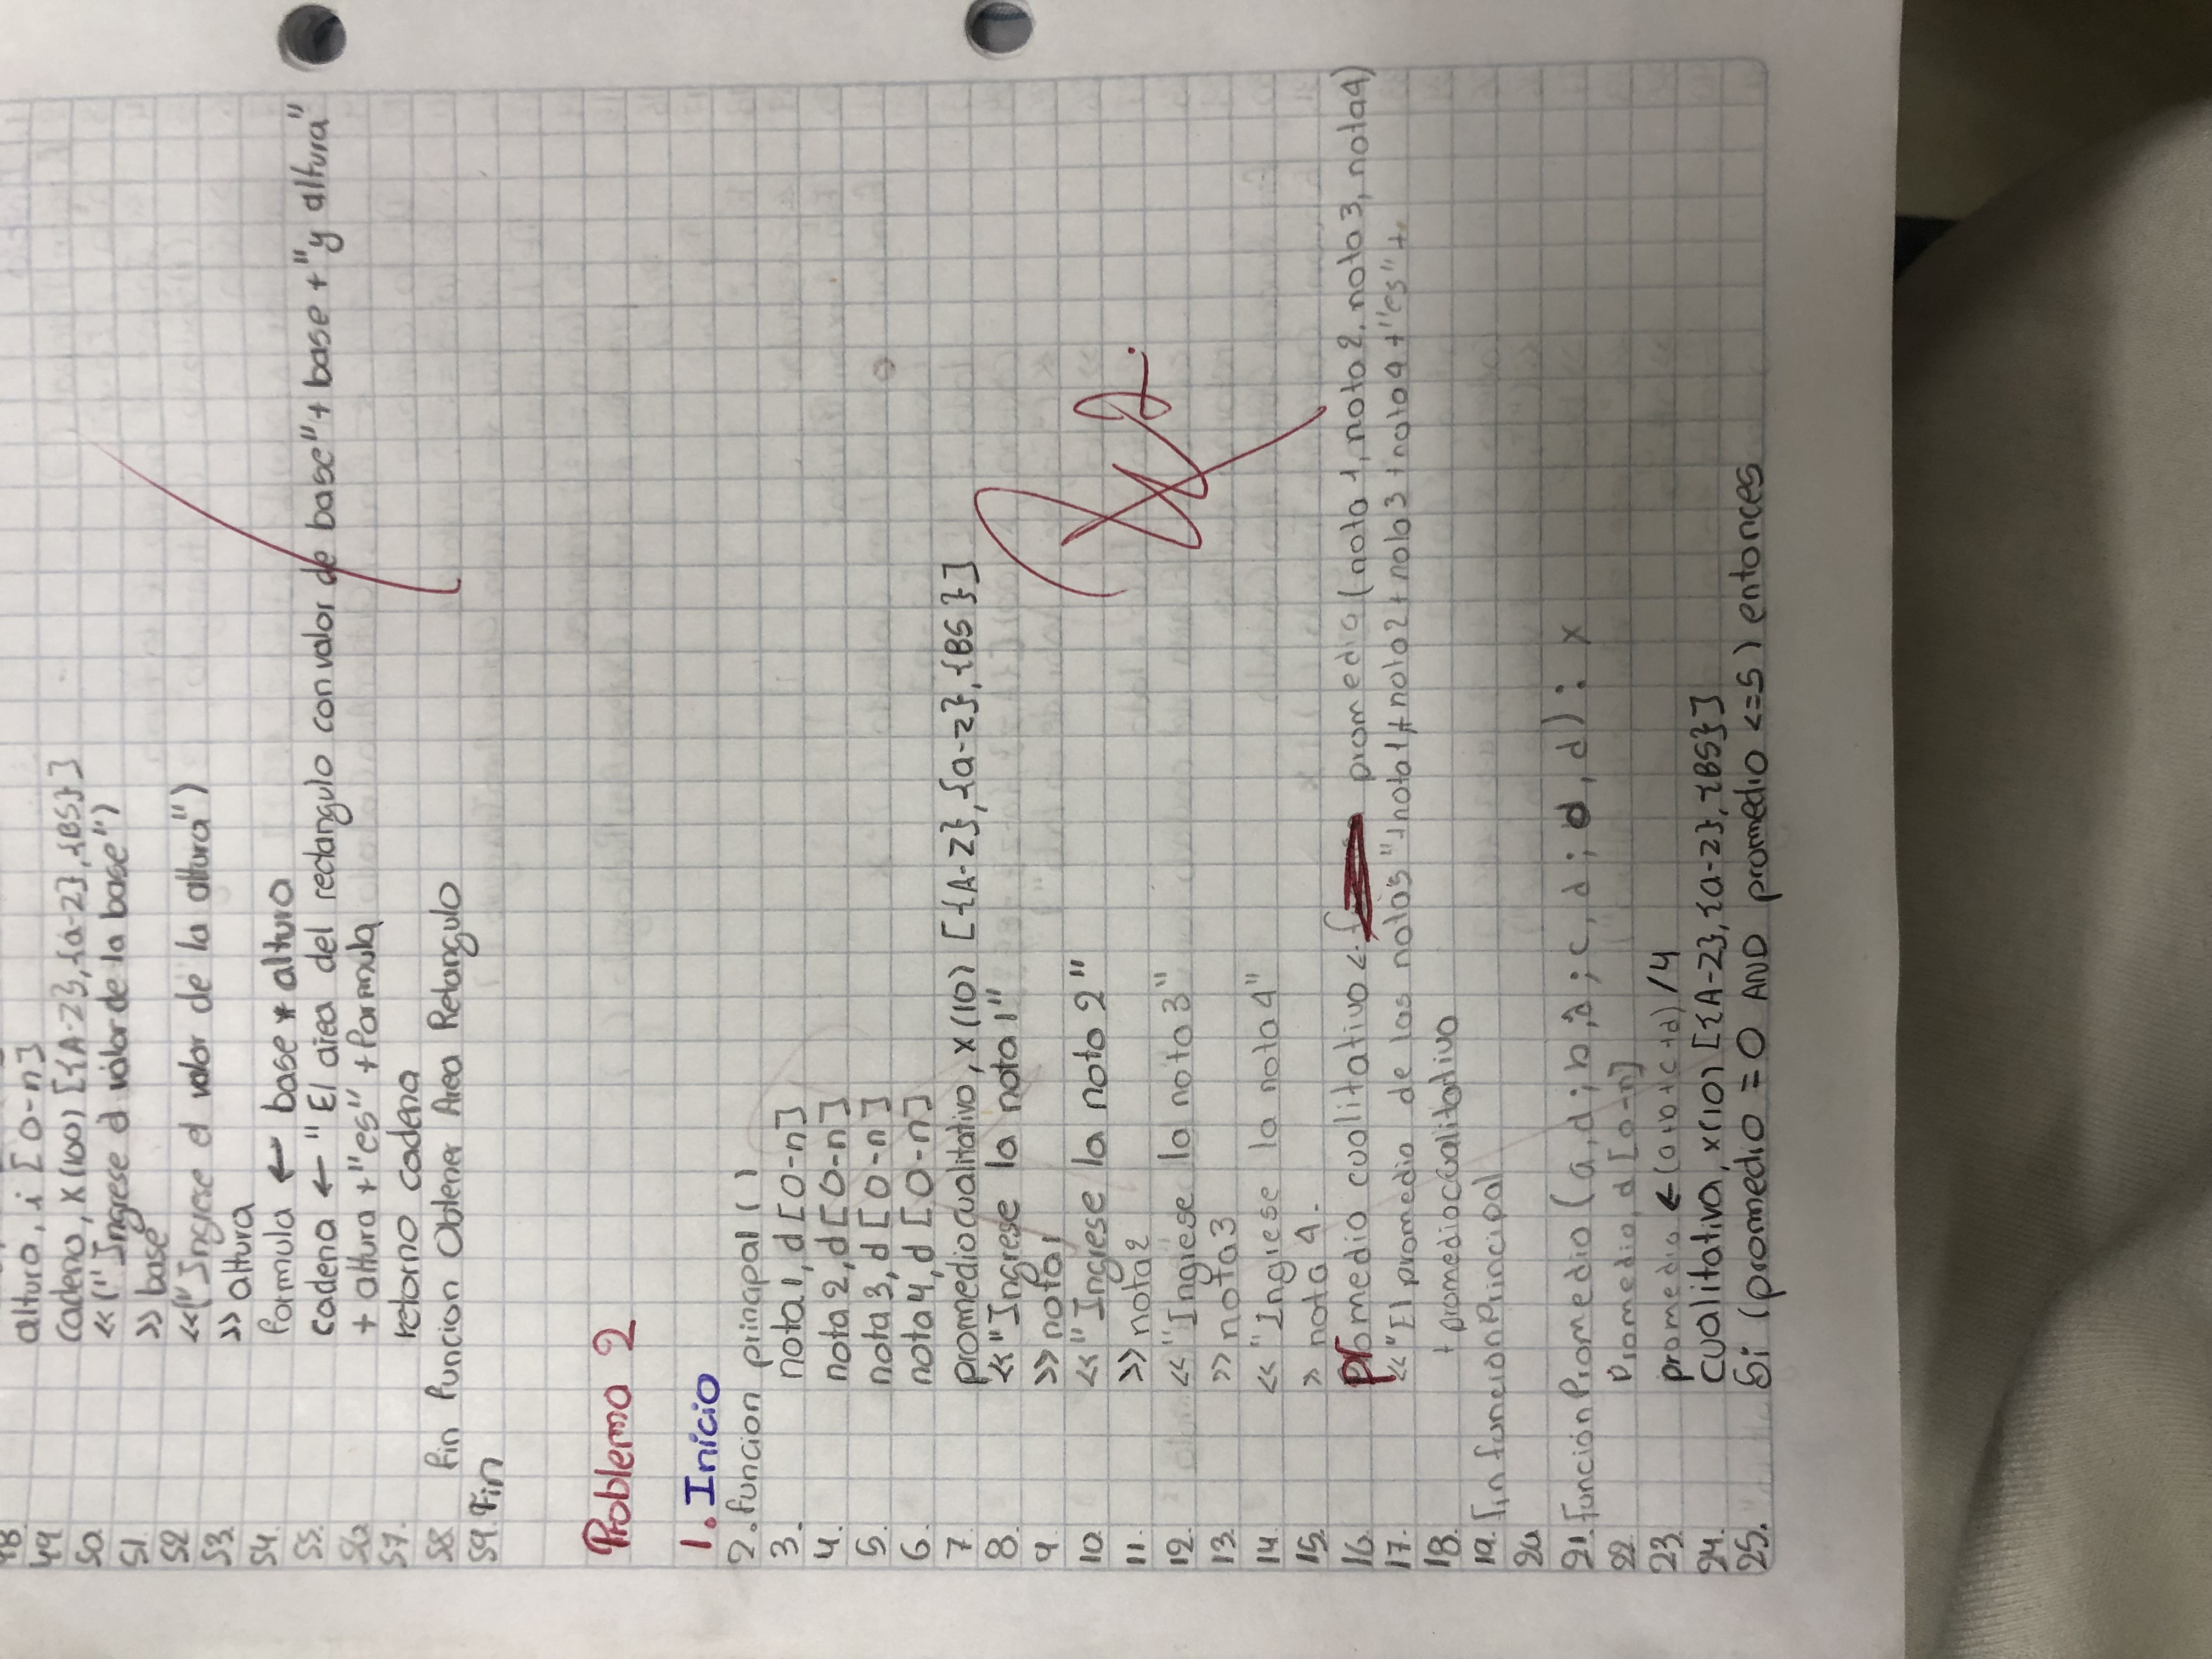 48
49 altura, i [0-n]
50. cadena, x(100) [{A-Z},{a-z},{BS}]
51. <<("Ingrese el valor de la base")
52 >> base
53. <<("Ingrese el valor de la altura")
54. >> altura
55. formula ← base * altura
56. cadena ← "El area del rectangulo con valor de base" + base + "y altura"
57. + altura + "es" + formula
retorno cadena
58 fin funcion Obtener Area Retangulo
59. Fin
Problema 2
1. Inicio
2. funcion principal ( )
3. nota1, d [0-n]
4. nota 2, d [0-n]
5. nota 3, d [0-n]
6. nota 4, d [0-n]
7 promedio cualitativo, x (10) [{A-Z},{a-z},{BS}]
8. << "Ingrese la nota 1"
9 >> nota1
10. << "Ingrese la nota 2"
11. >> nota2
12. << "Ingrese la nota 3"
13. >> nota 3
14. << "Ingrese la nota 4"
15. > nota 4.
16 promedio cualitativo <- promedio (nota 1, nota 2, nota 3, nota4)
17. << "El promedio de las notas" + nota1, + nota2 + nota 3 + nota 4 + "es" +
18. + promediocualitativo
19. fin funcion Principal
20
21. función Promedio (a, d; b, d; c, d; d, d): x
22. Promedio, d [0-n]
23. promedio ← (a+b+c+d) / 4
24. cualitativa, x(10) [{A-Z},{a-z},{BS}]
25. Si (promedio = 0 AND promedio <=5) entonces